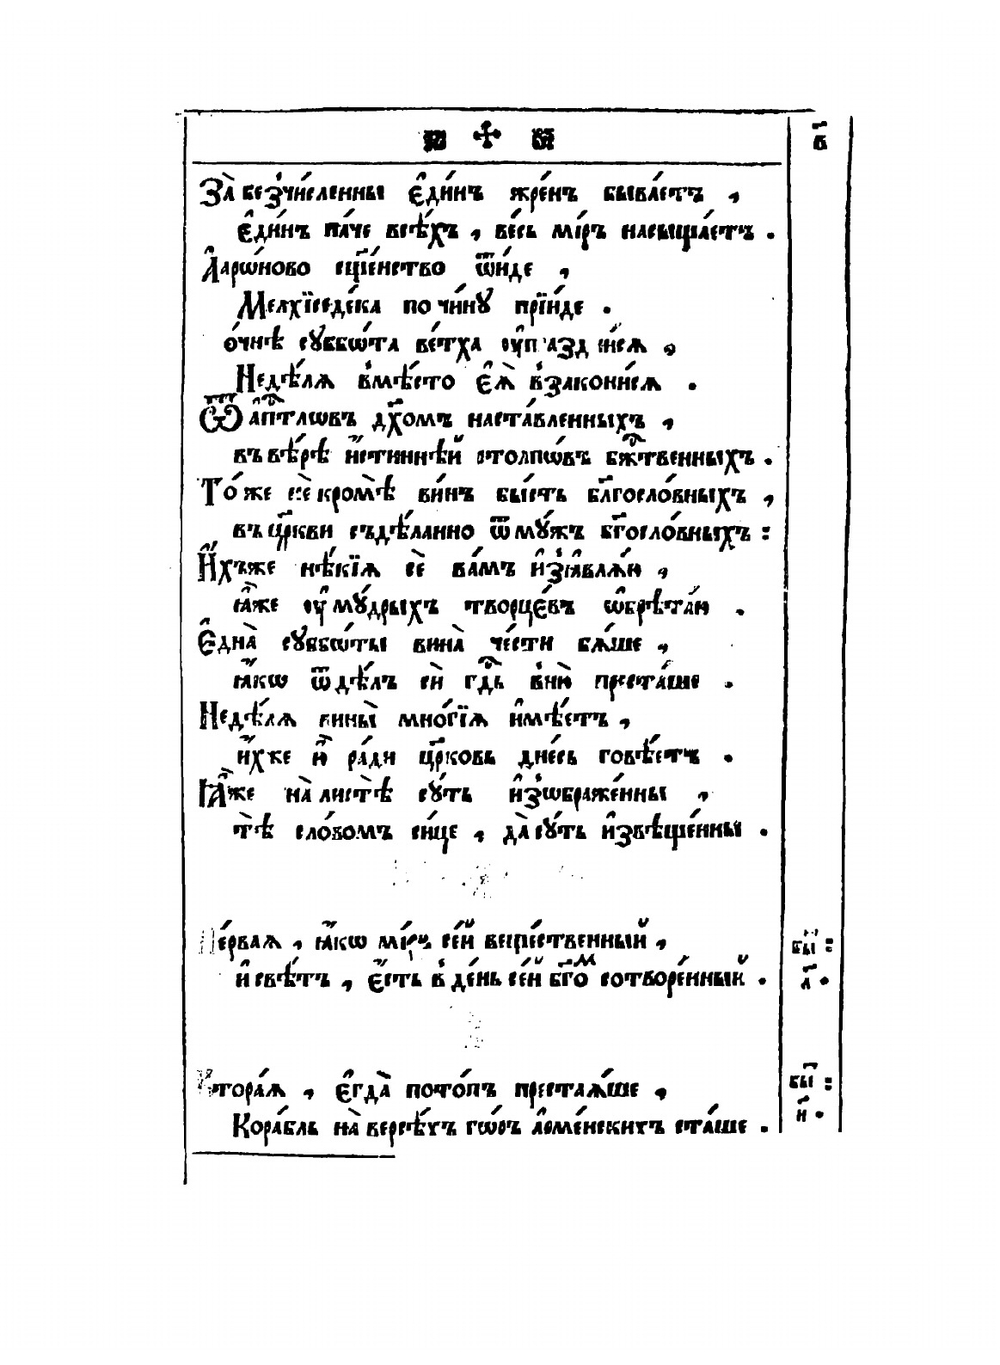 За̀ беꙁчи́сленны є҆ди́нъ жре́нъ быва́етъ ,
є҆ди́нъ па́че всѣ́хъ , ве́сь мі́ръ насыща́етъ .
А҆арѡ́ново сщ҃е́нство ѿи́де ,
Мелхїседе́ка по чи́нꙋ прїи́де .
сꙋббѡ́та ве́тха
Недѣ́лѧ вмѣ́сто є҆ѧ̀ вꙁаконѝсѧ .
Ѿ а҆п҃тлѡвъ дх҃омъ наста́вленныхъ ,
въ вѣ́рѣ и҆́стиннѣй столпѡ́въ бж҃твенныхъ .
То́же не кромѣ̀ ви́нъ бы́сть бл҃госло́вныхъ ,
въ цр҃кви съдѣ́ланно ѿ мꙋ́жъ бг҃осло́вныхъ :
И҆́хъже нѣ́кїѧ сѐ ва́мъ и҆ꙁꙗвлѧ́ю ,
ꙗ҆̀же ᲂу҆ мꙋ́дрыхъ творцє́въ ѡ҆брѣта́ю .
Є҆дна̀ сꙋббѡ́ты вина̀ че́сти бѧ́ше ,
ꙗ҆́кѡ ѿ дѣ́лъ сѝ гд҃ь в ню̀ преста́ше .
Недѣ́лѧ вины̀ мно́гїѧ и҆мѣ́етъ ,
и҆́хже и҆ ра́ди цр҃ковь дне́сь говѣ́етъ .
Ꙗ҆̀же на̀ листѣ̀ сꙋ́ть и҆ꙁѡбраже́нны ,
тѣ̀ сло́вомъ си́це , да̀ сꙋ́ть и҆ꙁвѣще́нны .
Пе́рваѧ , ꙗ҆́кѡ мі́ръ се́й веще́ственный ,
и҆ свѣ́тъ , є҆́сть в де́нь се́й бг҃омъ сотворе́нный .
бы҃ :
а҃ .
Втора́ѧ , є҆гда̀ пото́пъ престаѧ́ше ,
Кора́бль на̀ версѣ́хъ гѡ́ръ а҆рме́нскихъ ста́ше .
бы҃ :
и҃ .